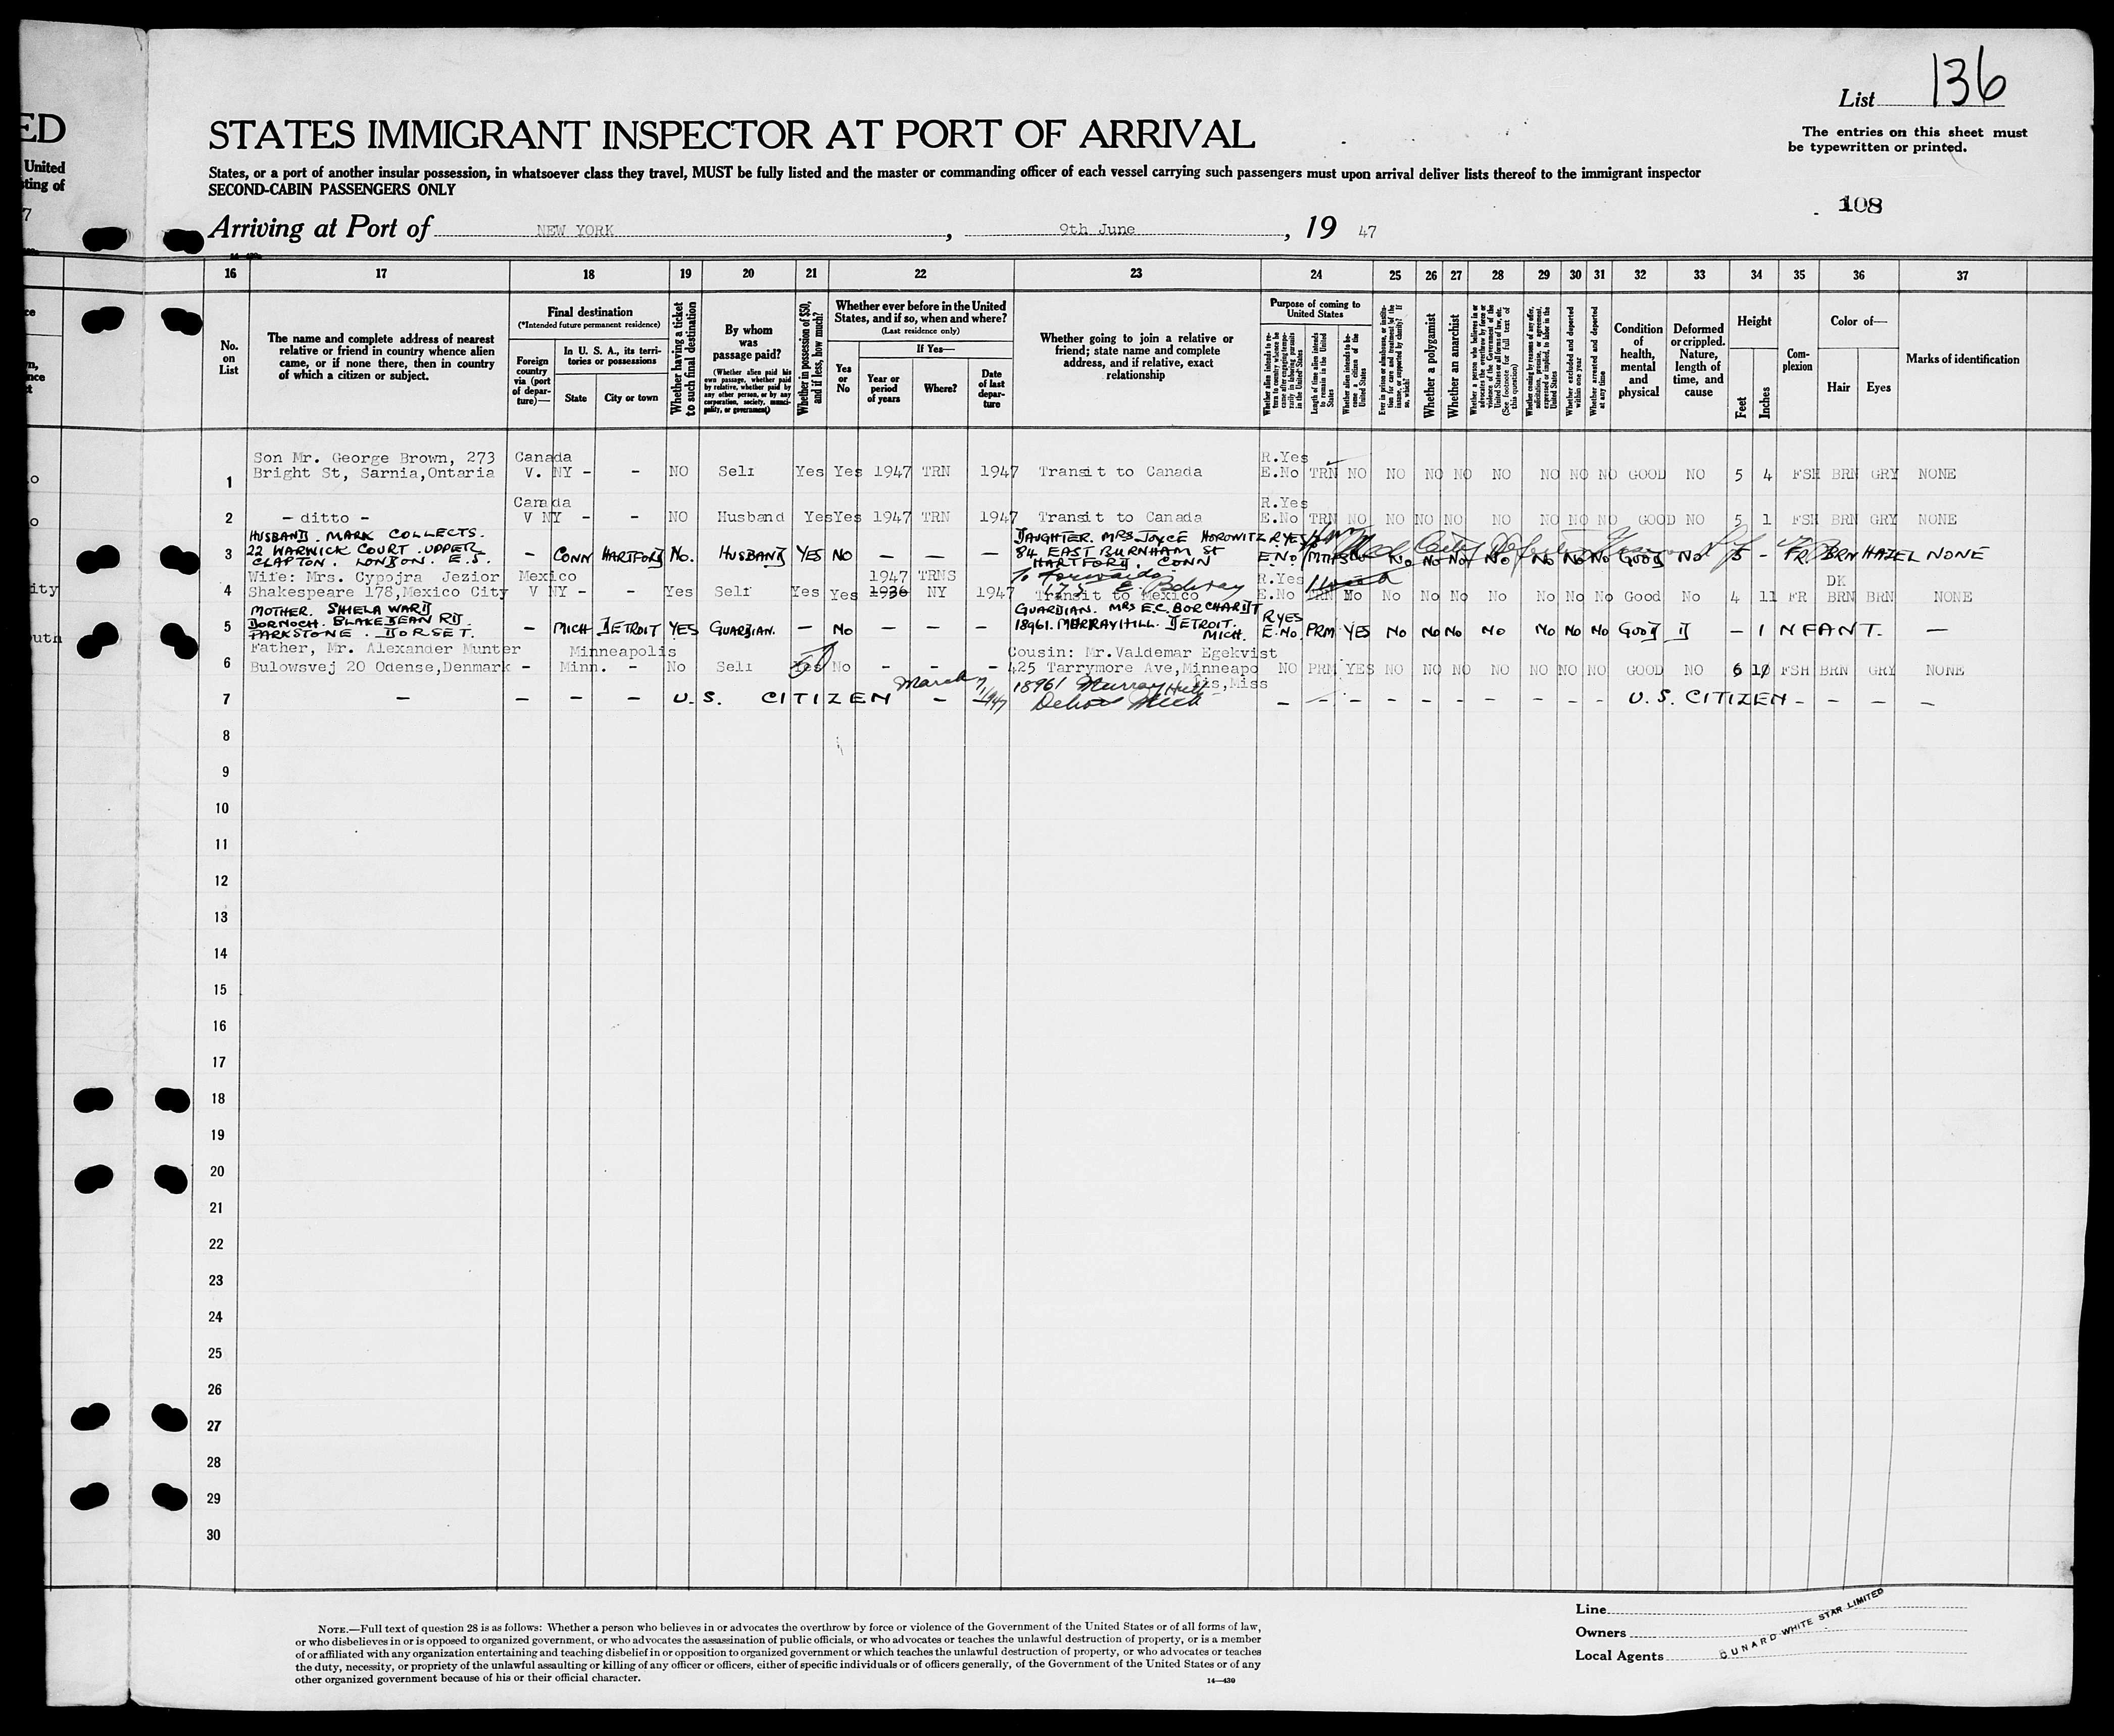 136
List
The entries on this sheet must
be typewritten or printed.
ED
STATES IMMIGRANT INSPECTOR AT PORT OF ARRIVAL
United
States, or a port of another insular possession, in whatsoever class they travel, MUST be fully listed and the master or commanding officer of each vessel carrying such passengers must upon arrival deliver lists thereof to the immigrant inspector
SECOND-CABIN PASSENGERS ONLY
108
Arriving at Port of NEW YORK, 9th June, 19 47
16 17 18 19 20 21 22 23 24 25 26 27 28 29 30 31 32 33 34 35 36 37
No.
on
List
The name and complete address of nearest
relative or friend in country whence alien
came, or if none there, then in country
of which a citizen or subject.
Final destination
(*Intended future permanent residence)
Foreign
country
via (port
of depar-
ture)—
In U. S. A., its terri-
tories or possessions
State
City or town
Whether having a ticket
to such final destination
By whom
was
passage paid?
(Whether alien paid his
own passage, whether paid
by relative, whether paid by
any other person, or by any
corporation, society, munici-
pality, or government)
Whether in possession of $50,
and if less, how much?
Whether ever before in the United
States, and if so, when and where?
(Last residence only)
Yes
or
No
If Yes—
Year or
period
of years
Where?
Date
of last
depar-
ture
Whether going to join a relative or
friend; state name and complete
address, and if relative, exact
relationship
Purpose of coming to
United States
Length of time alien intends
to remain in the United
States
Whether alien intends to be-
come a citizen of the
United States
Whether a polygamist
Whether an anarchist
Whether excluded and deported
within one year
Whether arrested and deported
at any time
Condition
of
health,
mental
and
physical
Deformed
or crippled.
Nature,
length of
time, and
cause
Height
Feet
Inches
Com-
plexion
Color of—
Hair
Eyes
Marks of identification
Son Mr. George Brown, 273 Canada R.Yes
1 Bright St, Sarnia,Ontaria V. NY - - NO Self Yes Yes 1947 TRN 1947 Transit to Canada E.No TRN NO NO NO NO NO NO NO NO GOOD NO 5 4 FSH BRN GRY NONE
Canada R.Yes
2 - ditto - V NY - - NO Husband Yes Yes 1947 TRN 1947 Transit to Canada E.No TRN NO NO NO NO NO NO NO NO GOOD NO 5 1 FSH BRN GRY NONE
HUSBAND. MARK COLLECTS. DAUGHTER. MRS JOYCE HOROWITZ R YES
3 22 WARWICK COURT. UPPER - CONN HARTFORD No. HUSBAND YES NO - - - 84 EAST BURNHAM St E.No MTHS No No No No No No No GOOD NO 5 - FR. BRN HAZEL NONE
CLAPTON. LONDON. E.5. HARTFORD. CONN
Wife: Mrs. Cypojra Jezior Mexico 1947 TRNS R.Yes DK
4 Shakespeare 178,Mexico City V NY - - Yes Self Yes Yes 1936 NY 1947 Transit to Mexico E.No TRN No No No No No No No No Good No 4 11 FR BRN BRN NONE
MOTHER. SHIELA WARD GUARDIAN. MRS E.C. BORCHARDT R YES
5 DORNOCH. BLAKE DEAN RD. - MICH DETROIT YES GUARDIAN. - No - - - 18961. MURRAY HILL. DETROIT. E.No PRM YES No No No No No No No GOOD D - INFANT. -
PARKSTONE. DORSET. MICH.
Father, Mr. Alexander Munter Minneapolis Cousin: Mr.Valdemar Egekvist
6 Bulowsvej 20 Odense,Denmark - Minn. - No Self No - - - 425 Tarrymore Ave,Minneapo NO PRM YES NO NO NO NO NO NO NO GOOD NO 6 10 FSH BRN GRY NONE
lis,Miss
18961 Murray Hill
7 - - - - U.S. CITIZEN - Detroit Mich - - - - - - - - - - U.S. CITIZEN - - - -
8
9
10
11
12
13
14
15
16
17
18
19
20
21
22
23
24
25
26
27
28
29
30
NOTE.—Full text of question 28 is as follows: Whether a person who believes in or advocates the overthrow by force or violence of the Government of the United States or of all forms of law,
or who disbelieves in or is opposed to organized government, or who advocates the assassination of public officials, or who advocates or teaches the unlawful destruction of property, or is a member
of or affiliated with any organization entertaining and teaching disbelief in or opposition to organized government or which teaches the unlawful destruction of property, or who advocates or teaches
the duty, necessity, or propriety of the unlawful assaulting or killing of any officer or officers, either of specific individuals or of officers generally, of the Government of the United States or of any
other organized government because of his or their official character.
14—430
Line
Owners
Local Agents
CUNARD WHITE STAR LIMITED